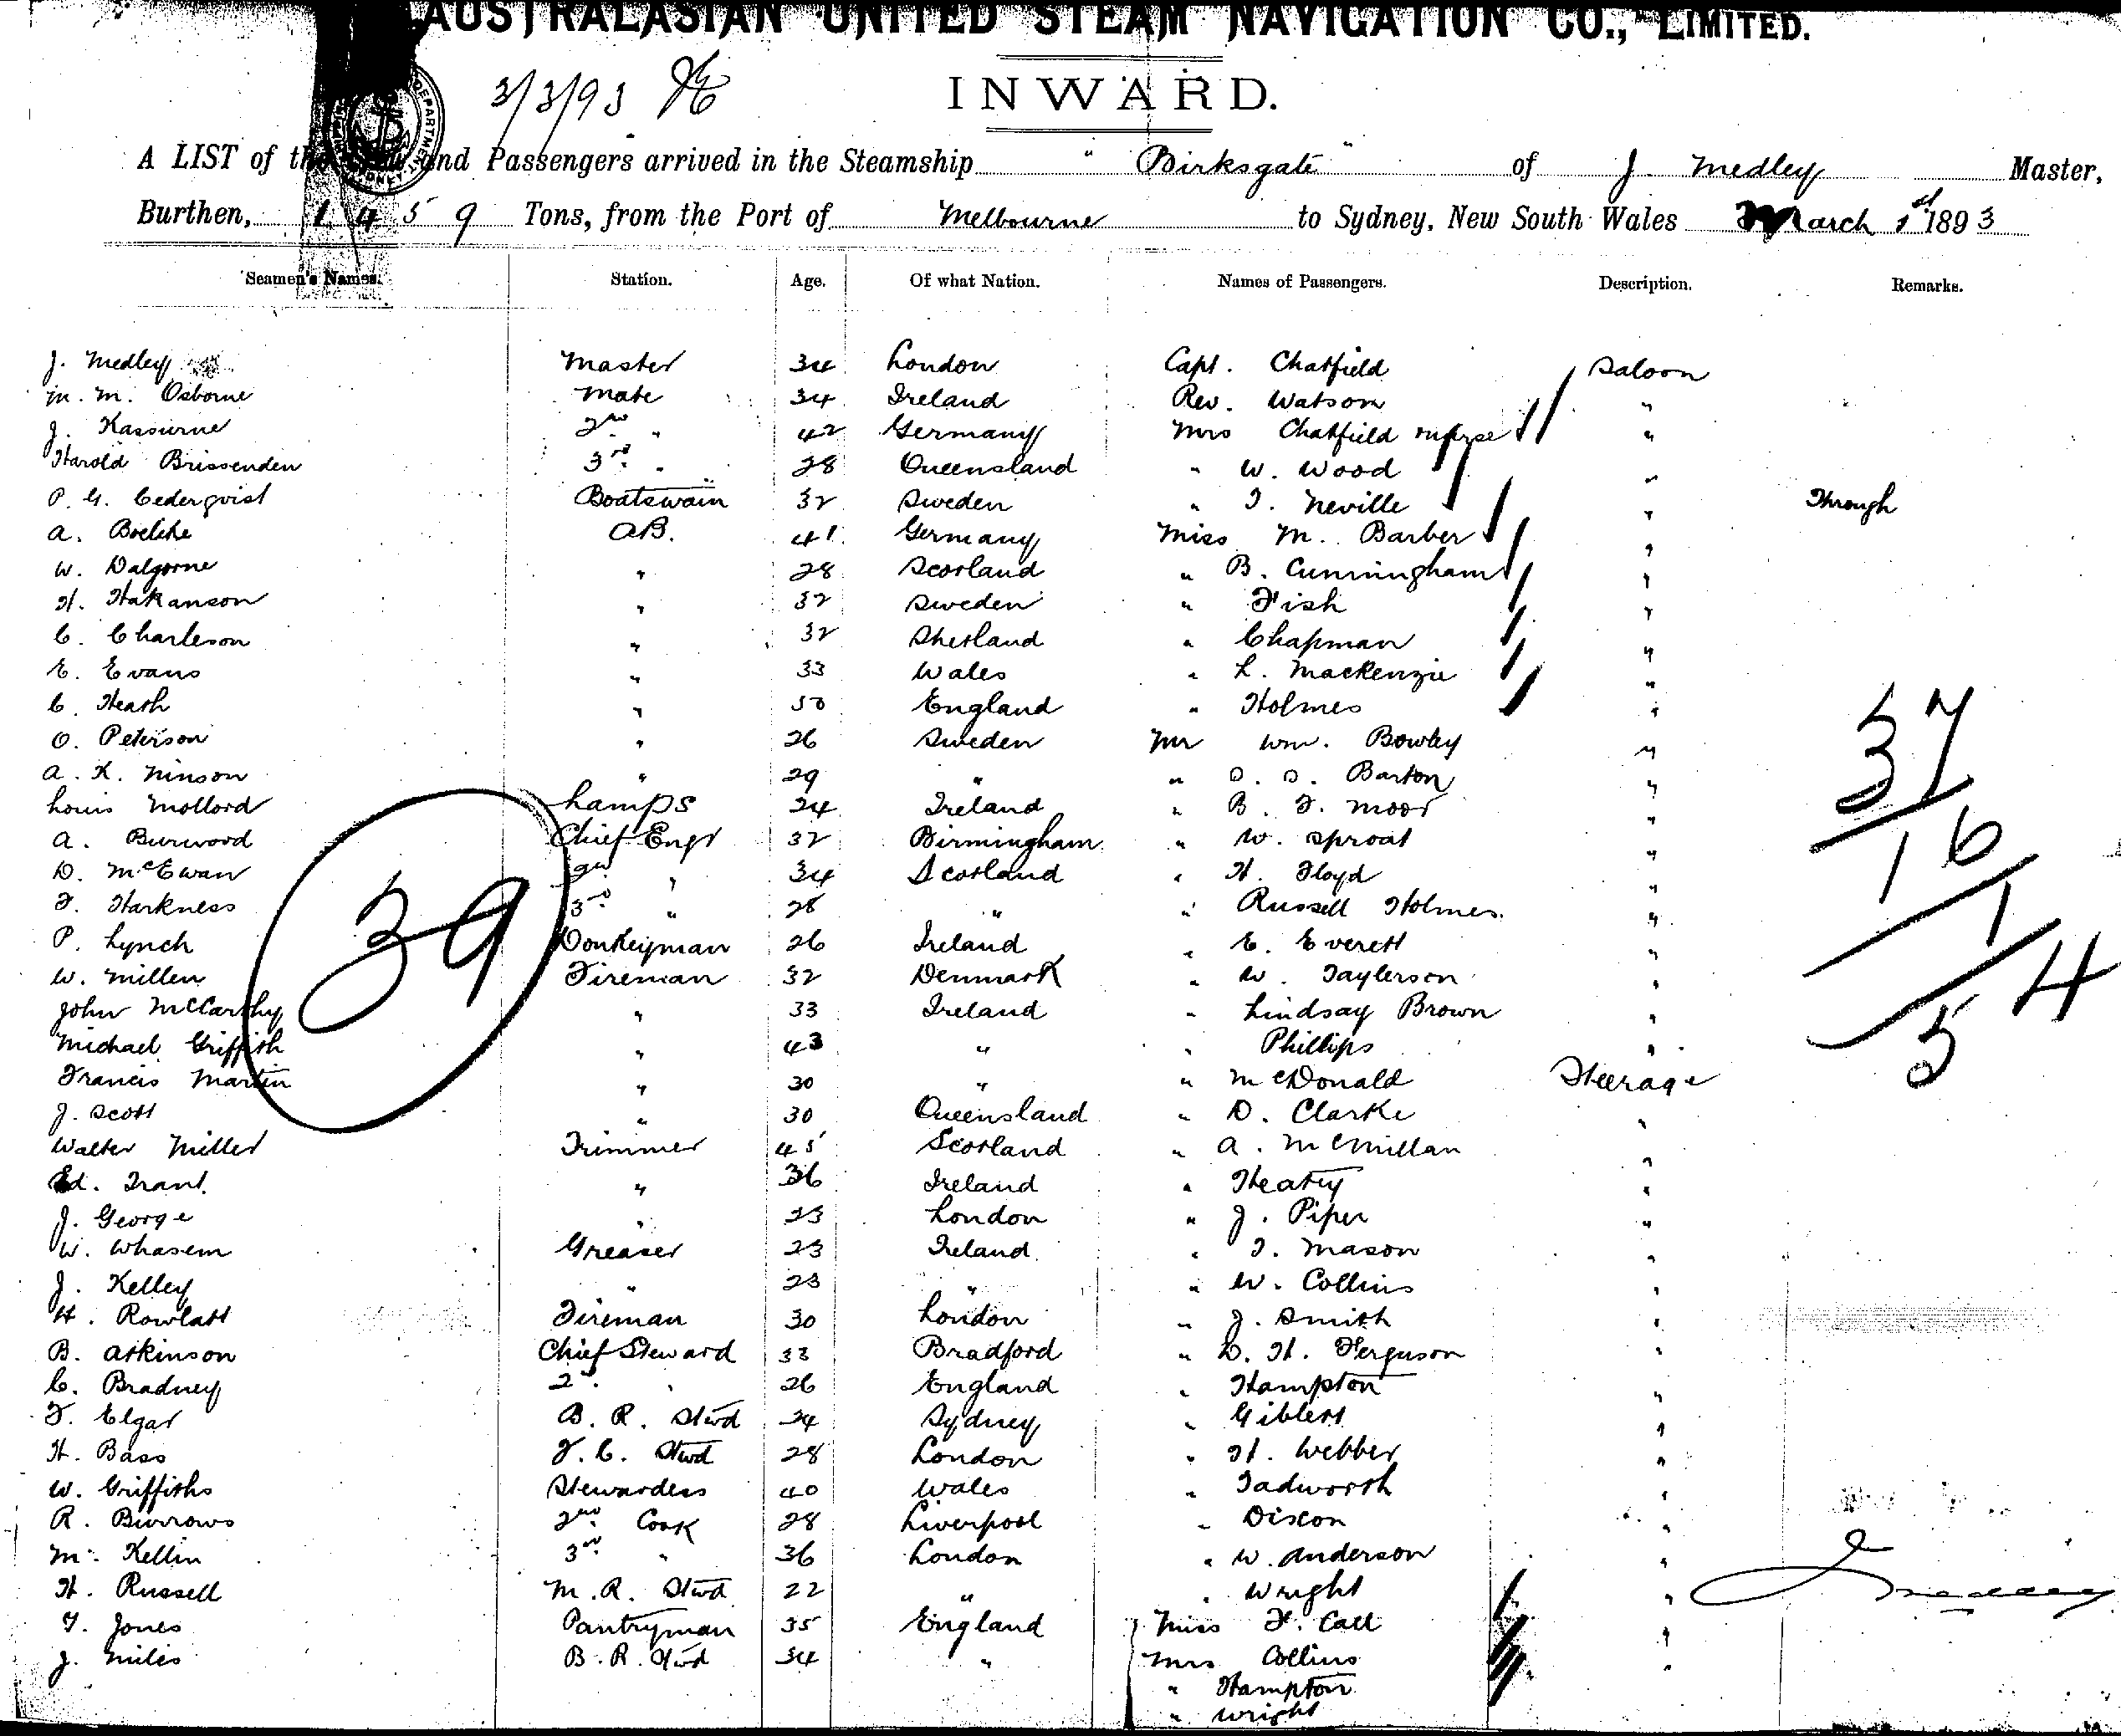 AUSTRALASIAN UNITED STEAM NAVIGATION CO., LIMITED.
3/3/93
INWARD.
A LIST of the and Passengers arrived in the Steamship "Birksgate" of J. Medley Master,
Burthen, 1459 Tons, from the Port of Melbourne to Sydney, New South Wales March 1st 1893
Seamen's Names. Station. Age. Of what Nation. Names of Passengers. Description. Remarks.
J. Medley Master 34 London Capt. Chatfield Saloon
M. M. Osborne Mate 34 Ireland Rev. Watson "
J. 2nd " 42 Germany Mrs Chatfield "
Harold Brissenden 3rd " 28 Queensland " W. Wood "
P. G. Cederqvist Boatswain 32 Sweden " T. Neville " Through
A. AB. 41 Germany Miss M. Barber "
W. Dalgorne " 28 Scotland " B. Cunningham "
H. Hakanson " 32 Sweden " Fish "
C. Charleson " 32 Shetland " Chapman "
E. Evans " 33 Wales " L. Mackenzie "
C. Heath " 50 England " Holmes "
O. Peterson " 26 Sweden Mr Wm. Bowley "
A. K. Ninson " 29 " " O. O. Barton "
Louis Mollord Lamps 24 Ireland " B. F. Moor "
A. Burwood Chief Engr 32 Birmingham " W. Sproat "
D. McEwan 2nd " 34 Scotland " H. Floyd "
F. Harkness 3rd " 28 " " Russell Holmes "
P. Lynch Donkeyman 26 Ireland " E. Everett "
W. Millen Fireman 32 Denmark " W. Taylerson "
John McCarthy " 33 Ireland " Lindsay Brown "
Michael Griffith " 43 " " Phillips "
Francis Martin " 30 " " McDonald Steerage
J. Scott " 30 Queensland " D. Clarke "
Walter Miller Trimmer 45 Scotland " A. McMillan "
Ed. Trant " 36 Ireland " Heaty "
J. George " 23 London " J. Piper "
W. Whasem Greaser 23 Ireland " T. Mason "
J. Kelley " 23 " " W. Collins "
H. Rowlatt Fireman 30 London " J. Smith "
B. Atkinson Chief Steward 33 Bradford " D. H. Ferguson "
C. Bradney 2nd " 26 England " Hampton "
F. Elgar B. R. Stwd 24 Sydney " Giblett "
H. Bass F. C. Stwd 28 London " H. Webber "
W. Griffiths Stewardess 40 Wales " Tadworth "
R. Burrows 2nd Cook 28 Liverpool " Dixon "
M. Kellin 3rd " 36 London " W. Anderson "
H. Russell M. R. Stwd 22 " " Wright "
T. Jones Pantryman 35 England Miss F. Call "
J. Miles B. R. Stwd 34 " Mrs Collins "
" Hampton
" Wright
39
37
16
1
4
5
J Medley